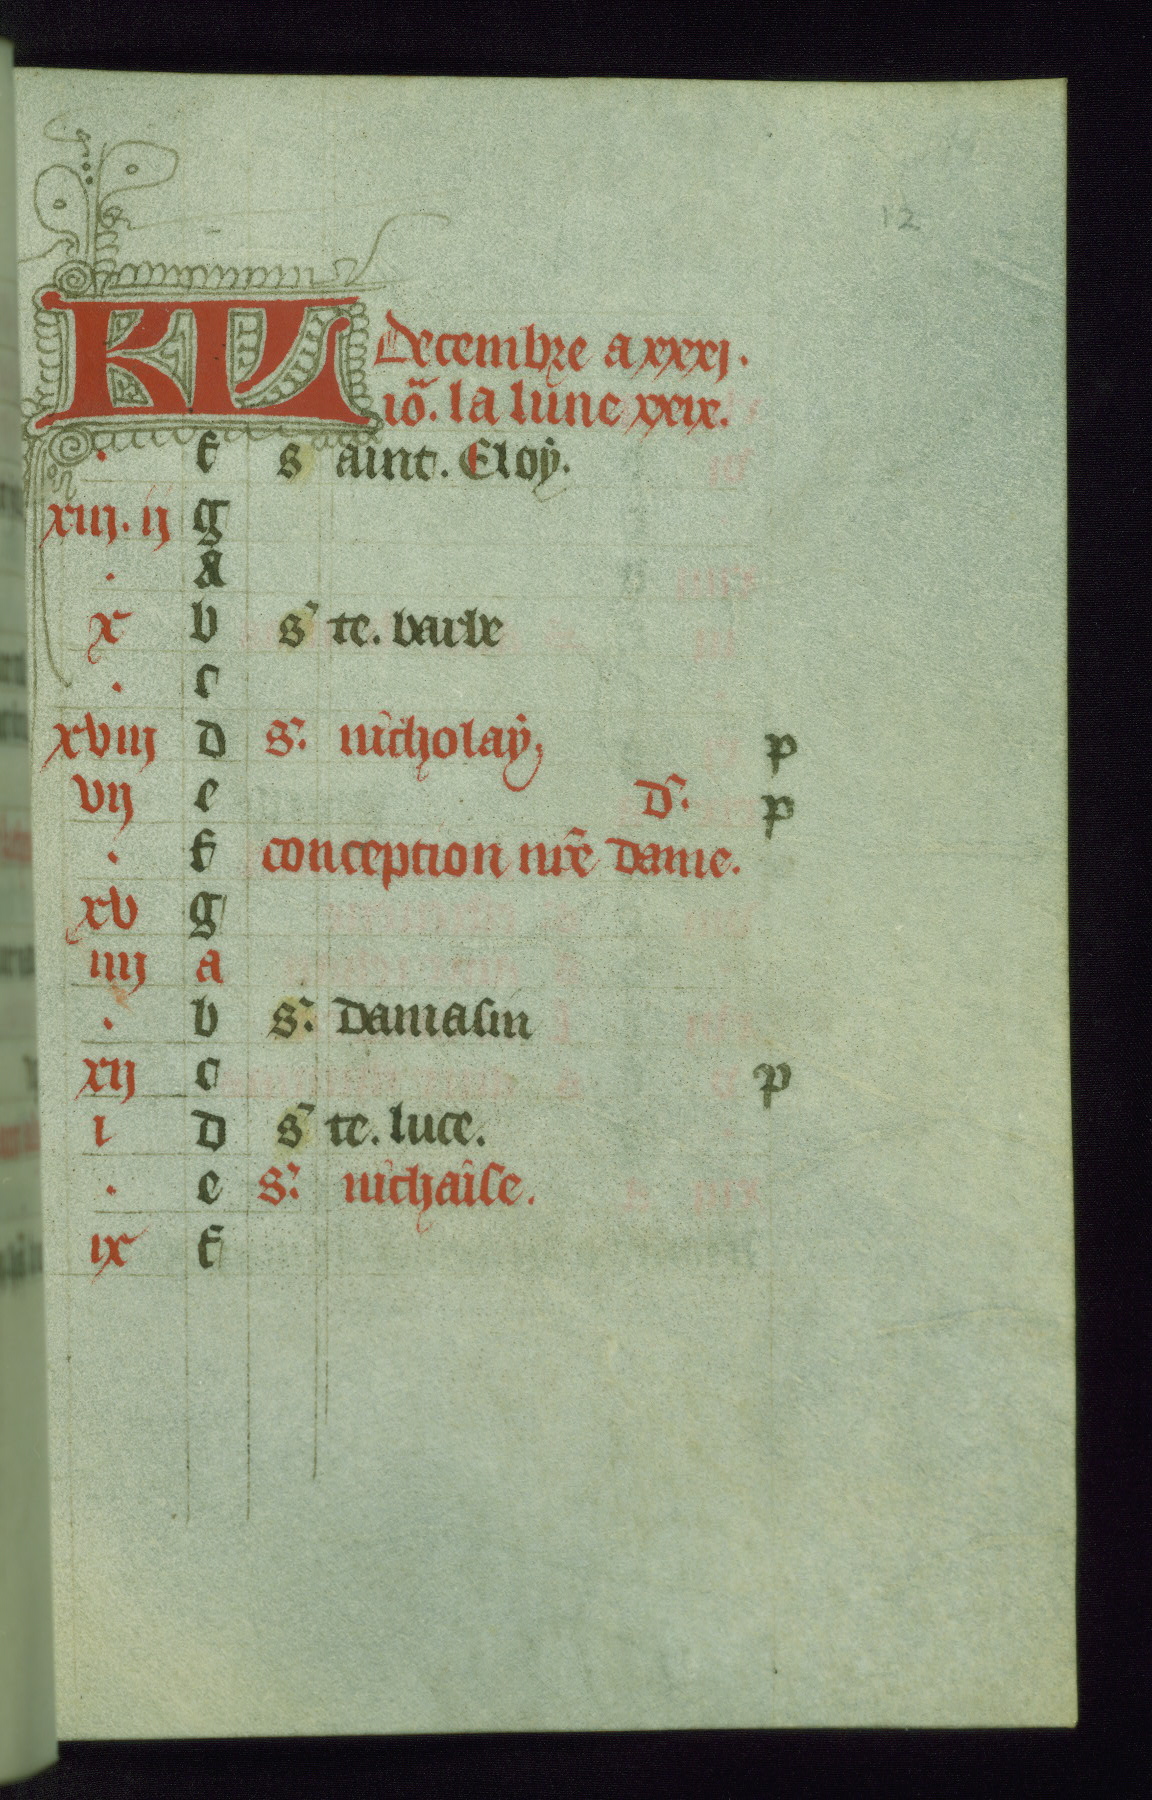 12
KL Decembre a xxxj.
iõ. la lune xxix.
. f s aint. Eloÿ.
xiij. ij g
. a
x b sͭ te. barbe
. c
xviij d S. nicholaÿ, p
vij e d'. p
. f conception nr̃e dame.
xv g
iiij a
. b S. Damasin
xij c p
i d s' te. luce.
. e S. nichaise.
ix f